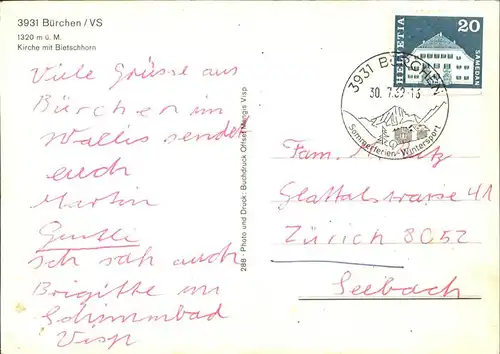 3931 Bürchen / VS
1320 m ü. M.
Kirche mit Bietschhorn
Viele Grüsse aus
Bürchen im
Wallis senden
euch
Martin
ich sah auch
Brigitte im
Schwimmbad
Visp
288 - Photo und Druck: Buchdruck Offset Mengis Visp
HELVETIA
20
SAMEDAN
3931 BÜRCHEN
30. 7.
Sommerferien - Wintersport
Fam.
Glattalstrasse 41
Zürich 8052
Seebach